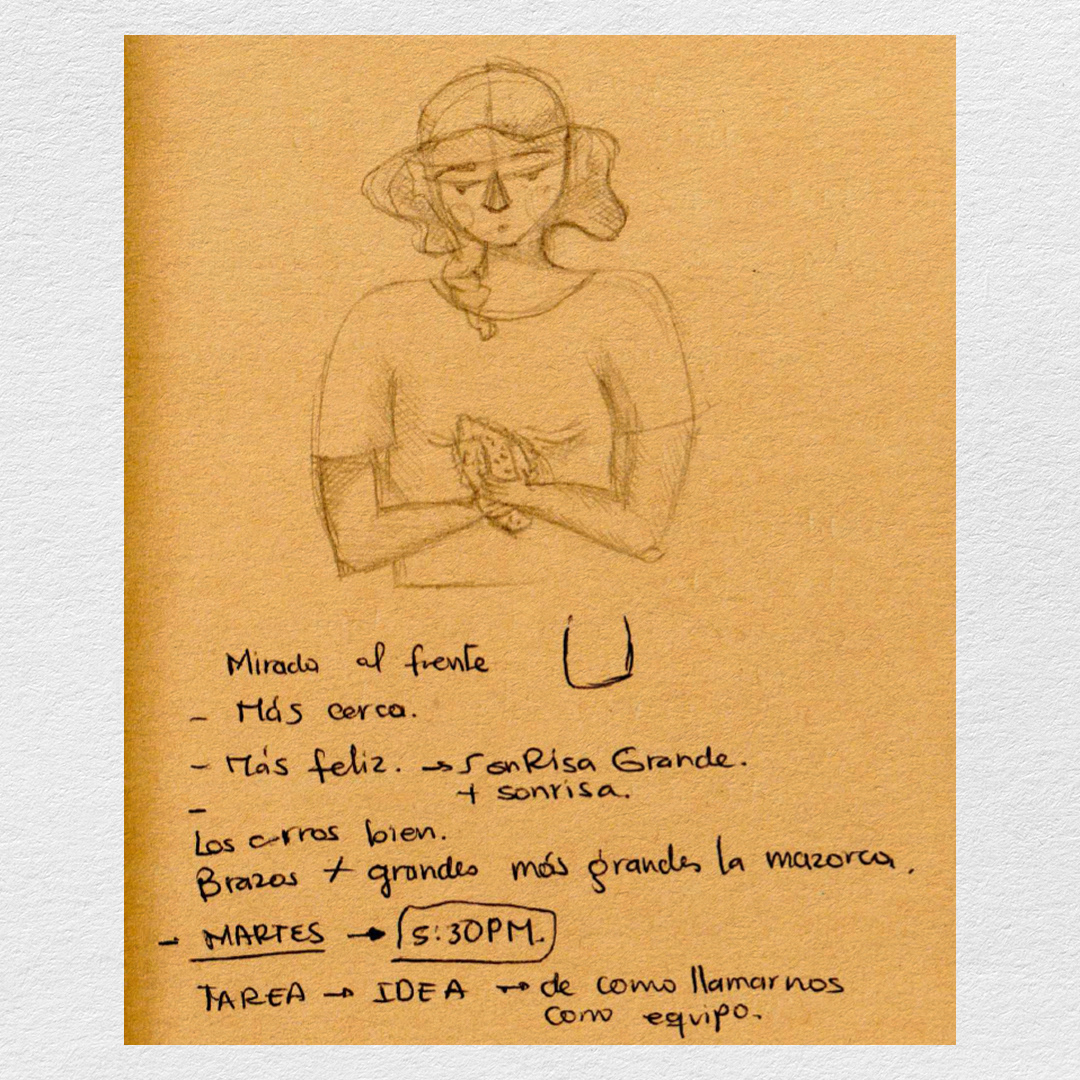 Mirada al frente
- Más cerca.
- Más feliz. → SonRisa Grande.
+ sonrisa.
-
Los cerros bien.
Brazos + grandes más grandes la mazorca.
- MARTES → 5:30PM.
TAREA → IDEA → de como llamarnos
como equipo.